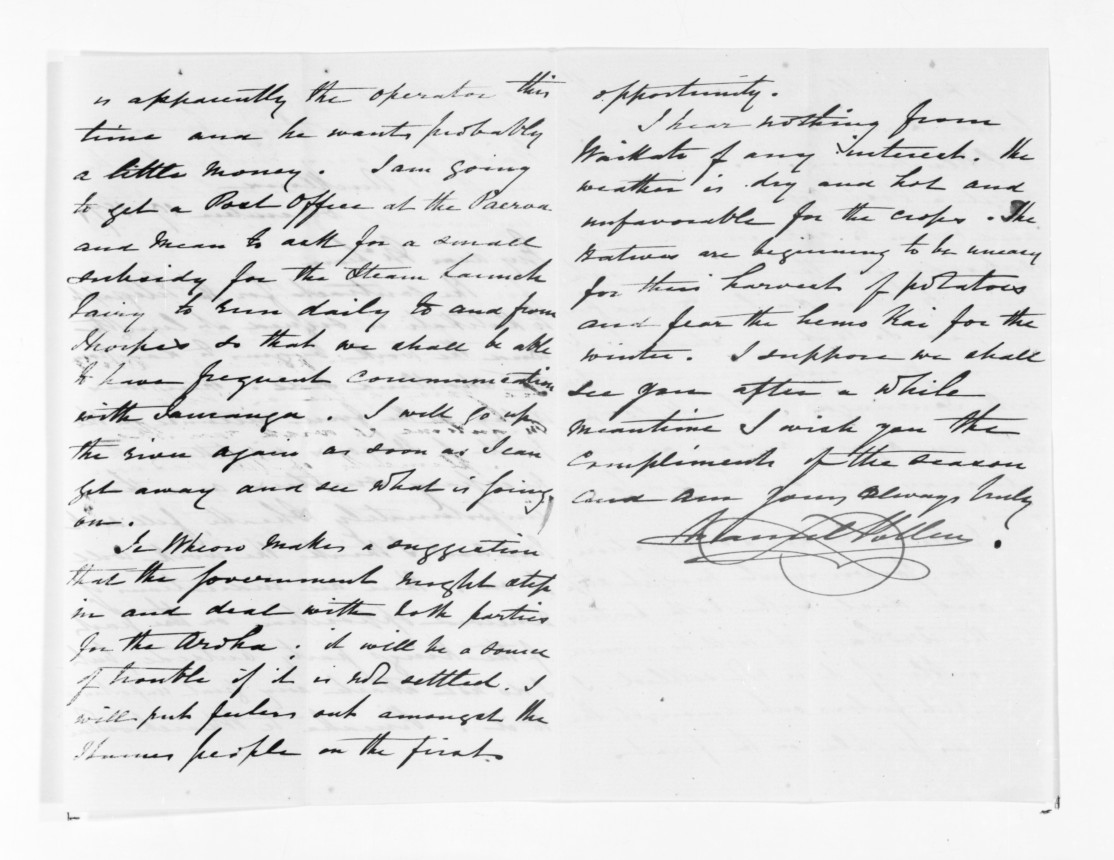 is apparently the operator this
time and he wants probably
a little money. I am going
to get a Post Office at the Paeroa
and mean to ask for a small
subsidy for the Steam Launch
Fairy to run daily to and from
Thorpes so that we shall be able
to have frequent communication
with Tauranga. I will go up
the river again as soon as I can
get away and see what is going
on.
Te Wheoro makes a suggestion
that the Government might step
in and deal with both parties
for the Aroha; it will be a source
of trouble if it is not settled. I
will put feelers out amongst the
Thames people on the first
opportunity.
I hear nothing from
Waikato of any interest. The
weather is dry and hot and
unfavorable for the crops. The
Natives are beginning to be uneasy
for their harvest of potatoes
and fear the hemo Kai for the
winter. I suppose we shall
see you after a while
meantime I wish you the
Compliments of the season
and am yours always truly
Daniel Pollen.